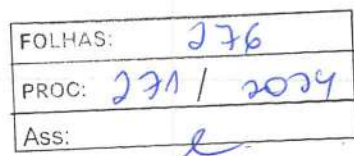 FOLHAS: 276
PROC: 271 / 2024
Ass: